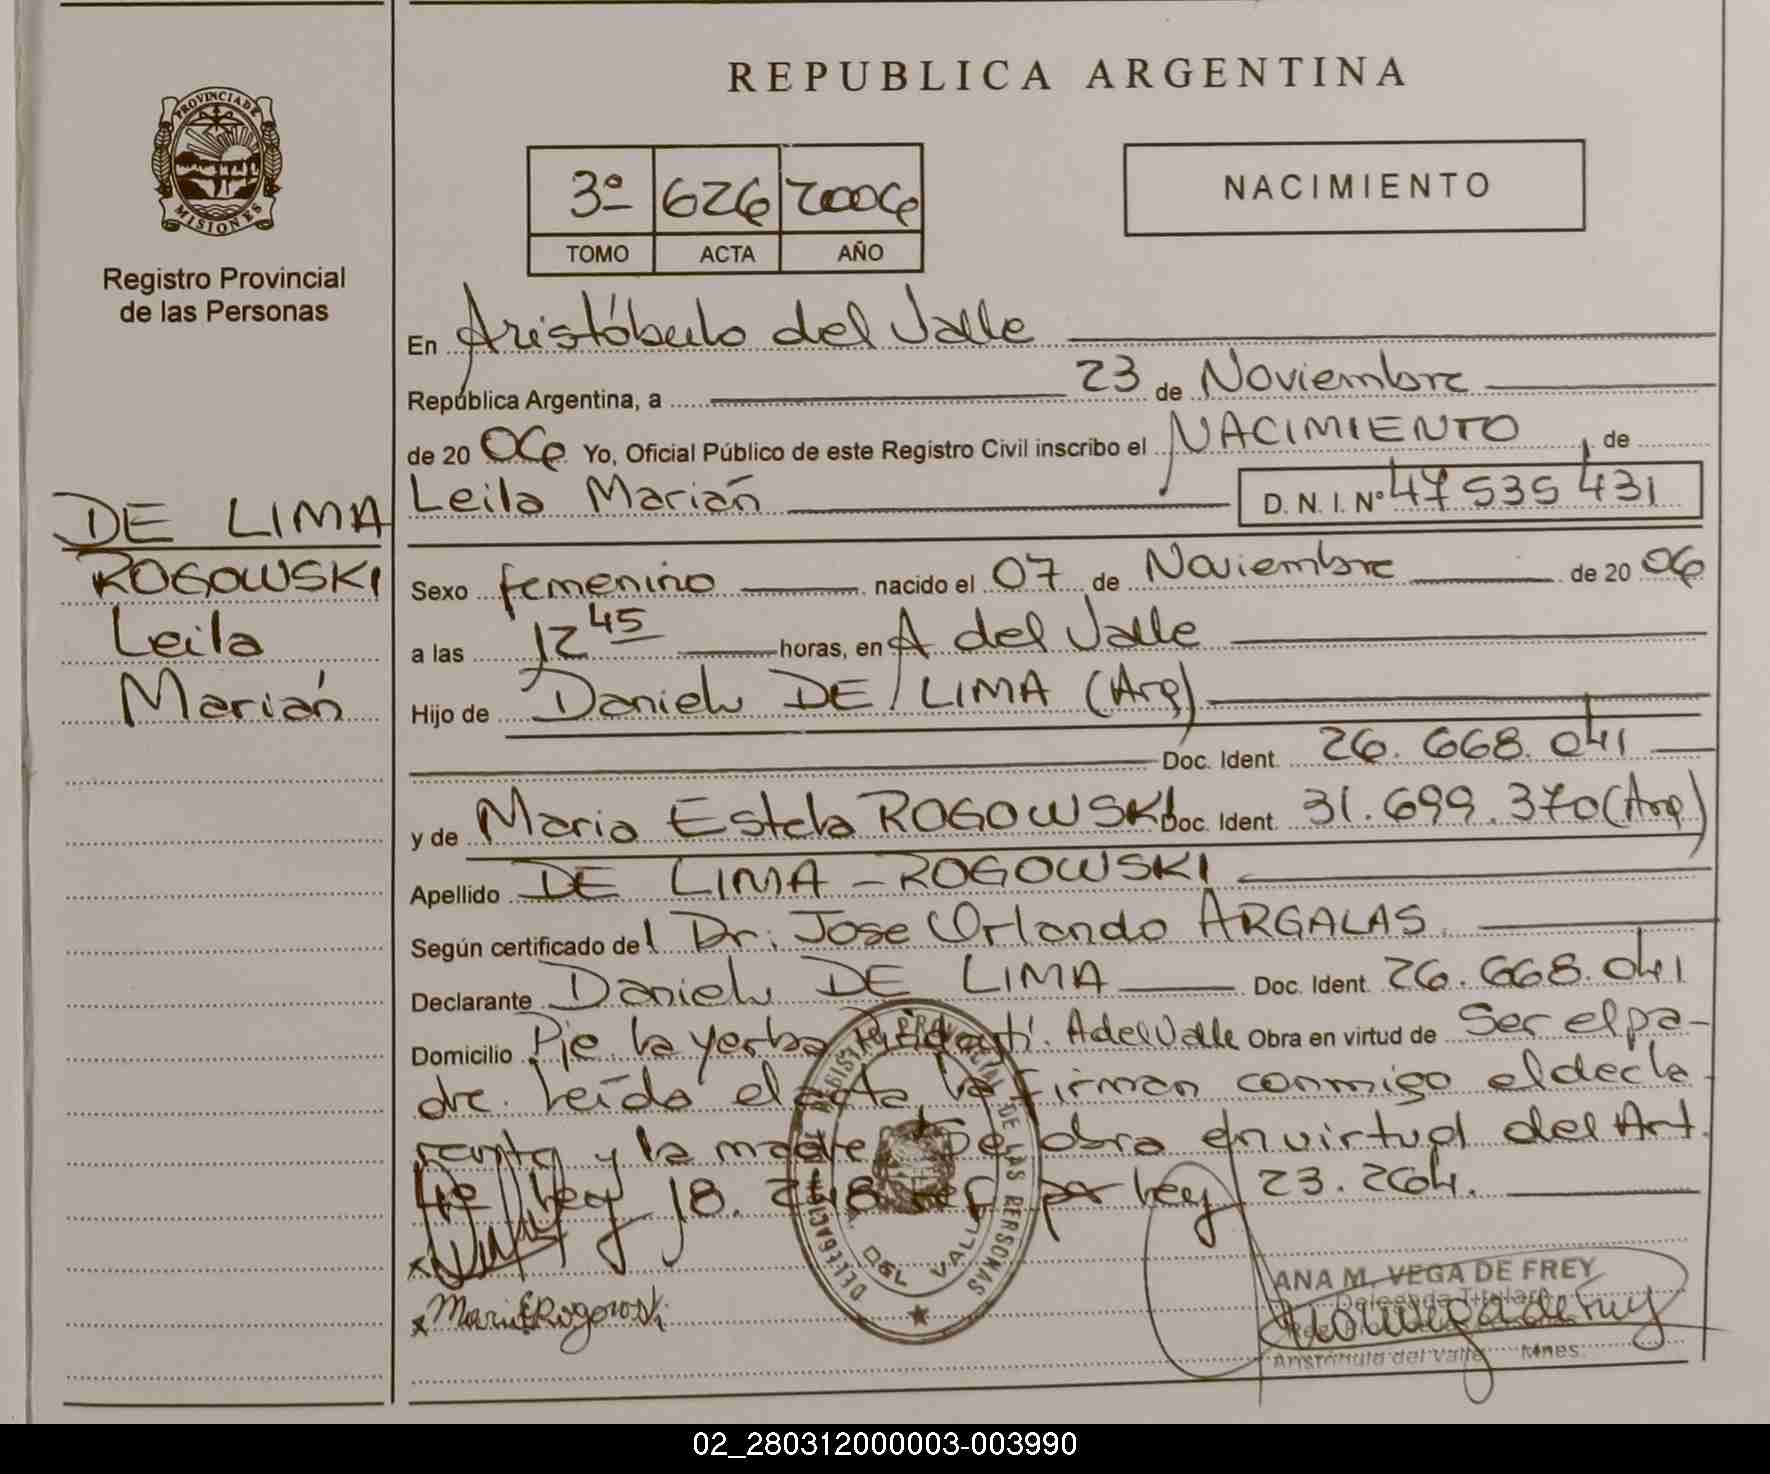 REPUBLICA ARGENTINA
PROVINCIA DE
MISIONES
Registro Provincial
de las Personas
3º 626 2006
TOMO ACTA AÑO
NACIMIENTO
En Aristóbulo del Valle
República Argentina, a 23 de Noviembre
de 20 06 Yo, Oficial Público de este Registro Civil inscribo el NACIMIENTO, de
Leila Marián D. N. I. Nº 47 535 431
DE LIMA
ROGOWSKI
Leila
Marián
Sexo femenino nacido el 07 de Noviembre de 20 06
a las 12 45 horas, en A del Valle
Hijo de Daniel DE LIMA (Arg)
Doc. Ident. 26.668.041
y de Maria Estela ROGOWSKI Doc. Ident. 31.699.370 (Arg)
Apellido DE LIMA - ROGOWSKI
Según certificado del Dr. Jose Orlando ARGALAS.
Declarante Daniel DE LIMA Doc. Ident. 26.668.041
Domicilio Pje. la yerba A del Valle Obra en virtud de Ser el pa-
dre. Leída el acta la firman conmigo el decla
rante y la madre. Se obra en virtud del Art.
Ley 18.248 ref por ley 23.264.
DELEGACION REGISTRO PROVINCIAL DE LAS PERSONAS
DEL VALLE
ANA M. VEGA DE FREY
Delegada Titular
Aristóbulo del Valle Mnes.
02_280312000003-003990